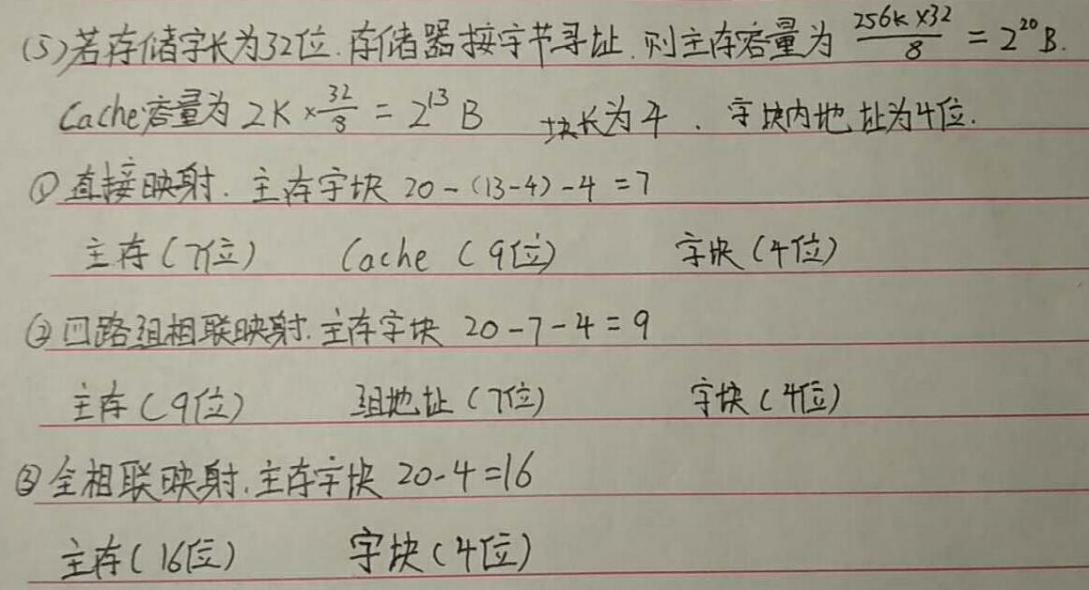 (5)若存储字长为32位.存储器按字节寻址.则主存容量为 256K×32/8 = 2²⁰B.
Cache容量为 2K×32/8 = 2¹³B 块长为4. 字块内地址为4位.
①直接映射. 主存字块 20-(13-4)-4=7
主存(7位) Cache (9位) 字块(4位)
②四路组相联映射.主存字块 20-7-4=9
主存(9位) 组地址(7位) 字块(4位)
③全相联映射.主存字块 20-4=16
主存(16位) 字块(4位)